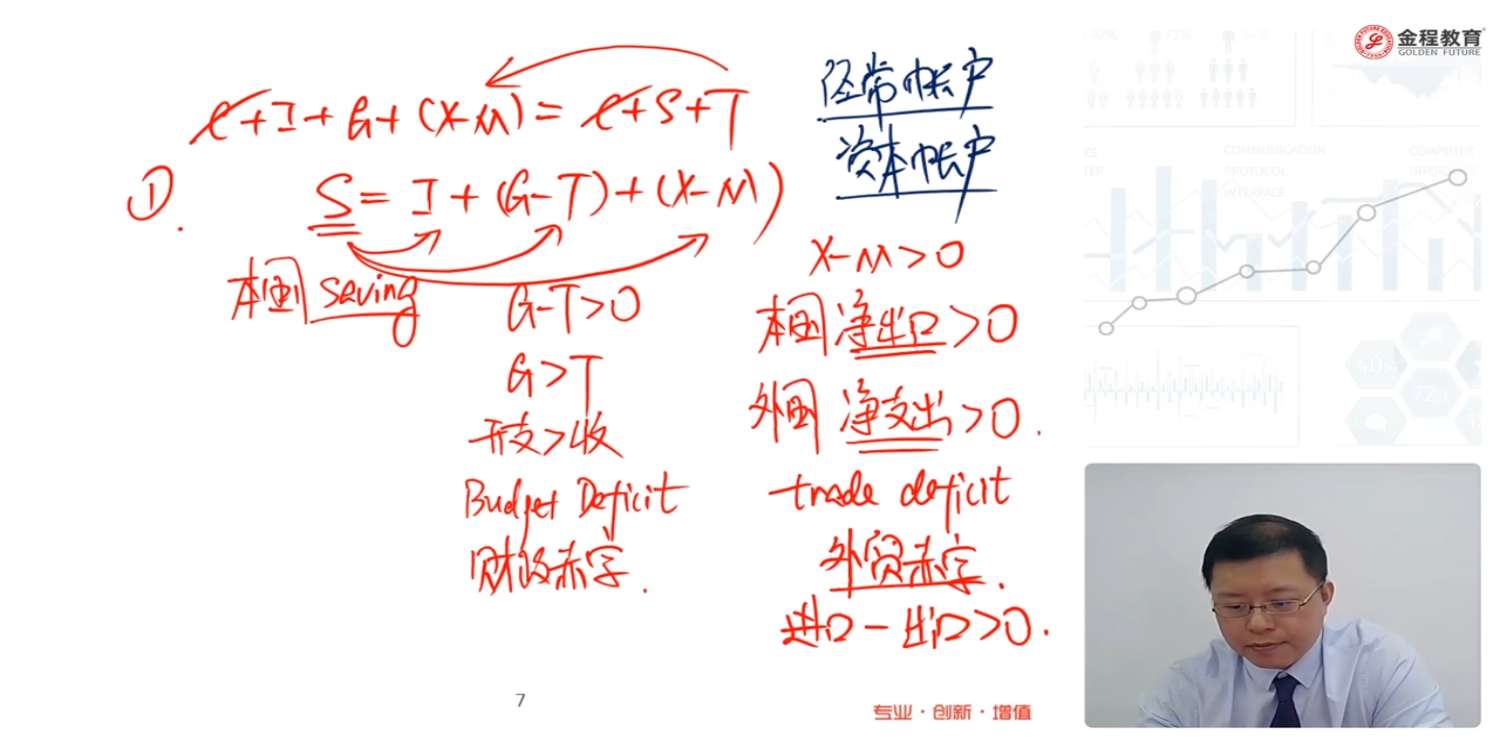 金程教育
GOLDEN FUTURE
C+I+G+(X-M)=C+S+T
① S=I+(G-T)+(X-M)
本国 saving
G-T>0
G>T
开支>收
Budget Deficit
财政赤字.
经常帐户
资本帐户
X-M>0
本国净出口>0
外国净支出>0.
trade deficit
外贸赤字.
进口-出口>0.
COMMUNICATION
PROTOCOL
INTERFACE
7
专业·创新·增值